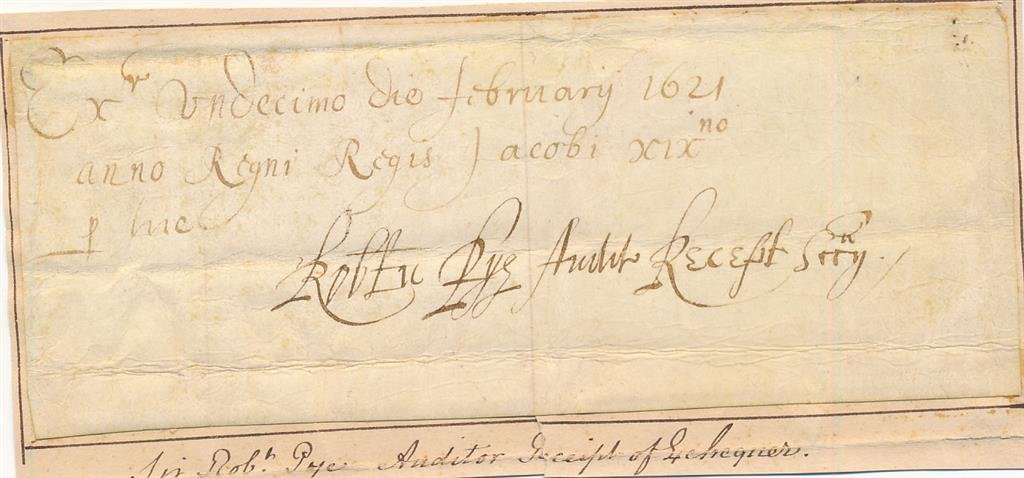 Exr Undecimo die februarij 1621
anno Regni Regis Jacobi XIXno
p me
Robtu Pye Audit Recept Sccij.
Sir Robt. Pye Auditor Receipt of Exchequer.